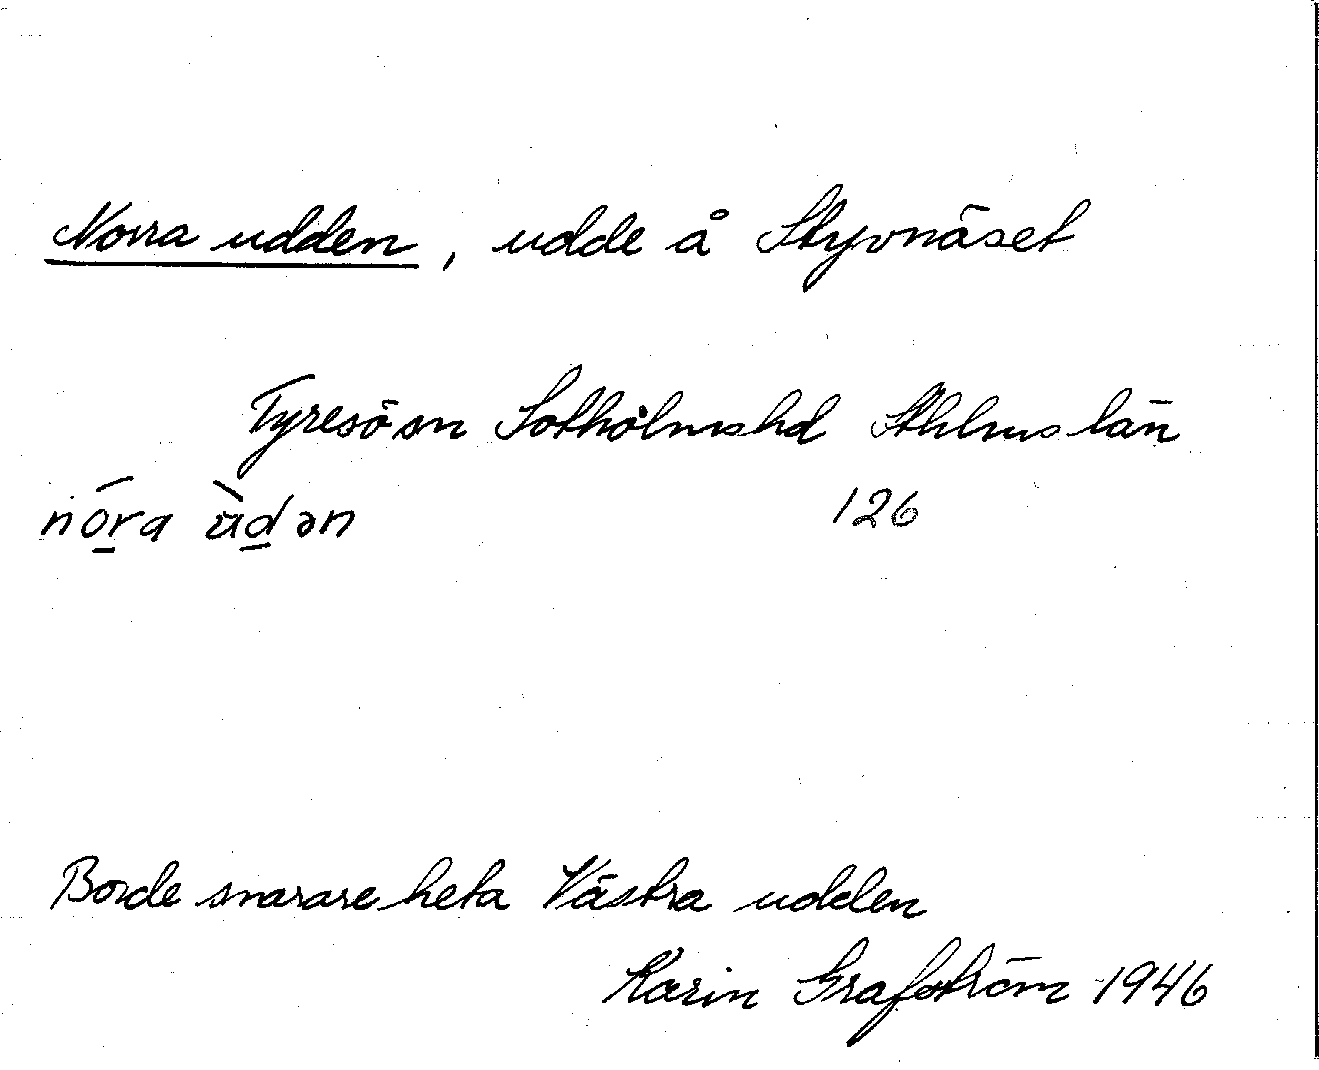 Norra udden, udde å Styvnäset
Tyresö sn Sotholms hd Sthlms län
nó̱ra ùḏən 126
Borde snarare heta Västra udden
Karin Grafström 1946